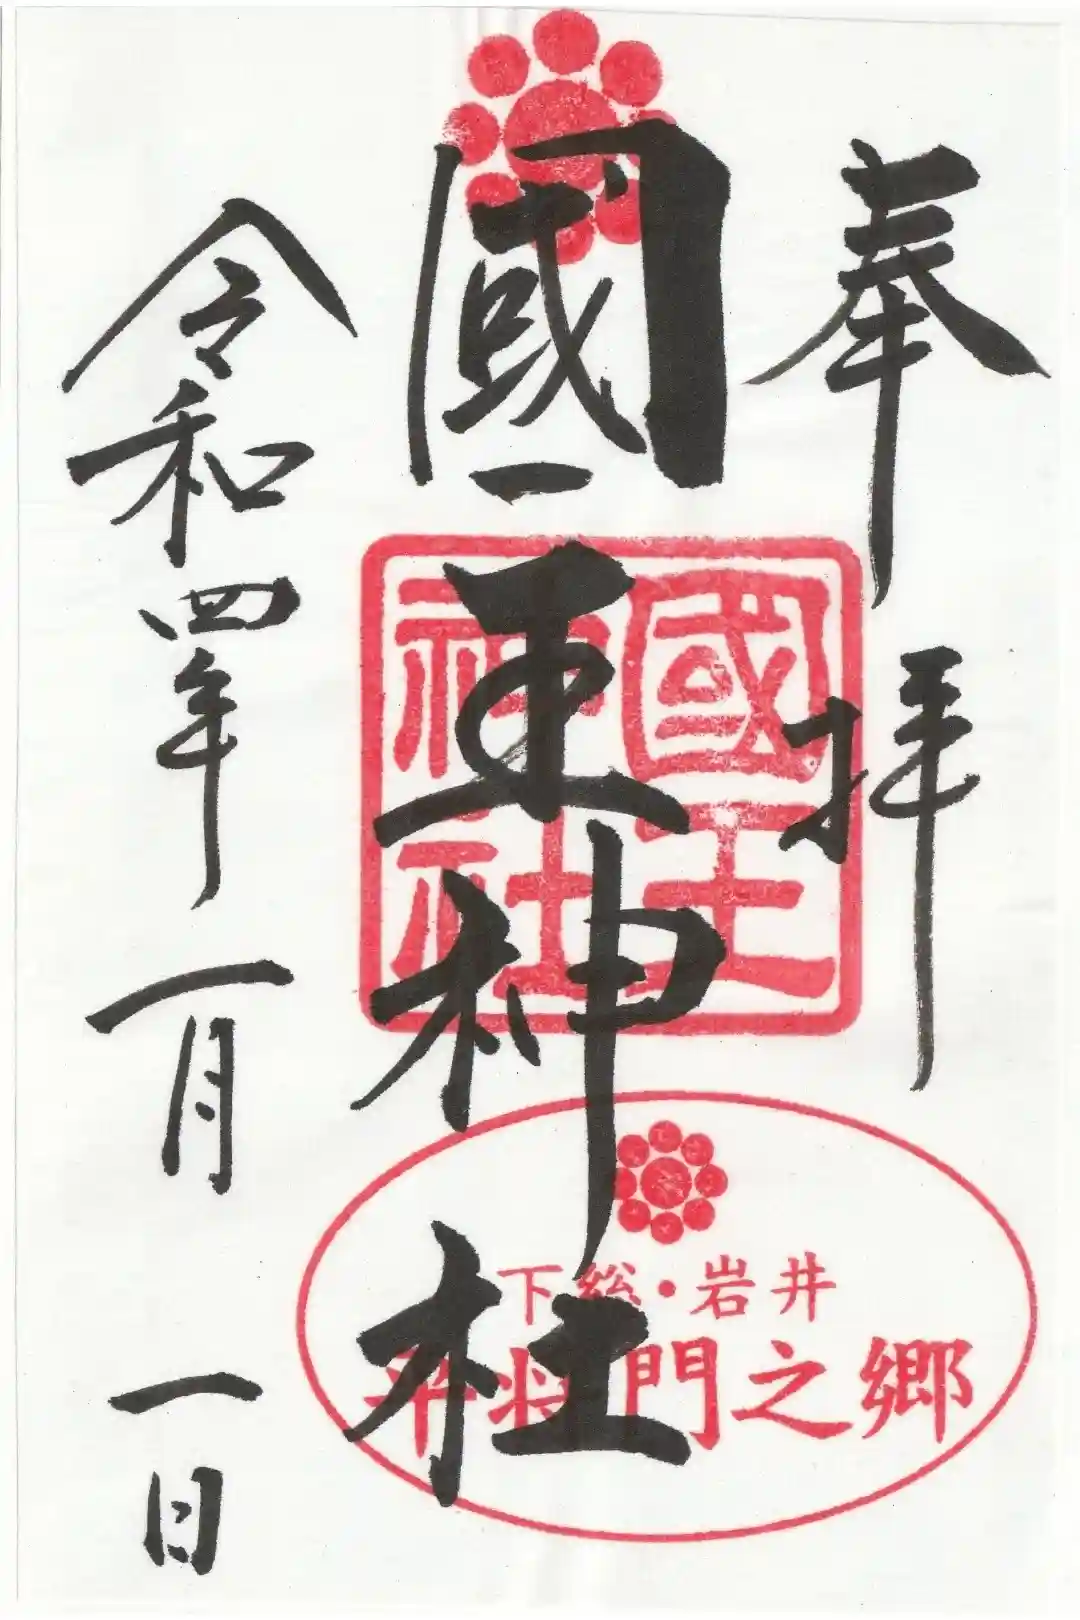 奉拝
國王神社
令和四年一月一日
國王
神社
下総・岩井
平将門之郷